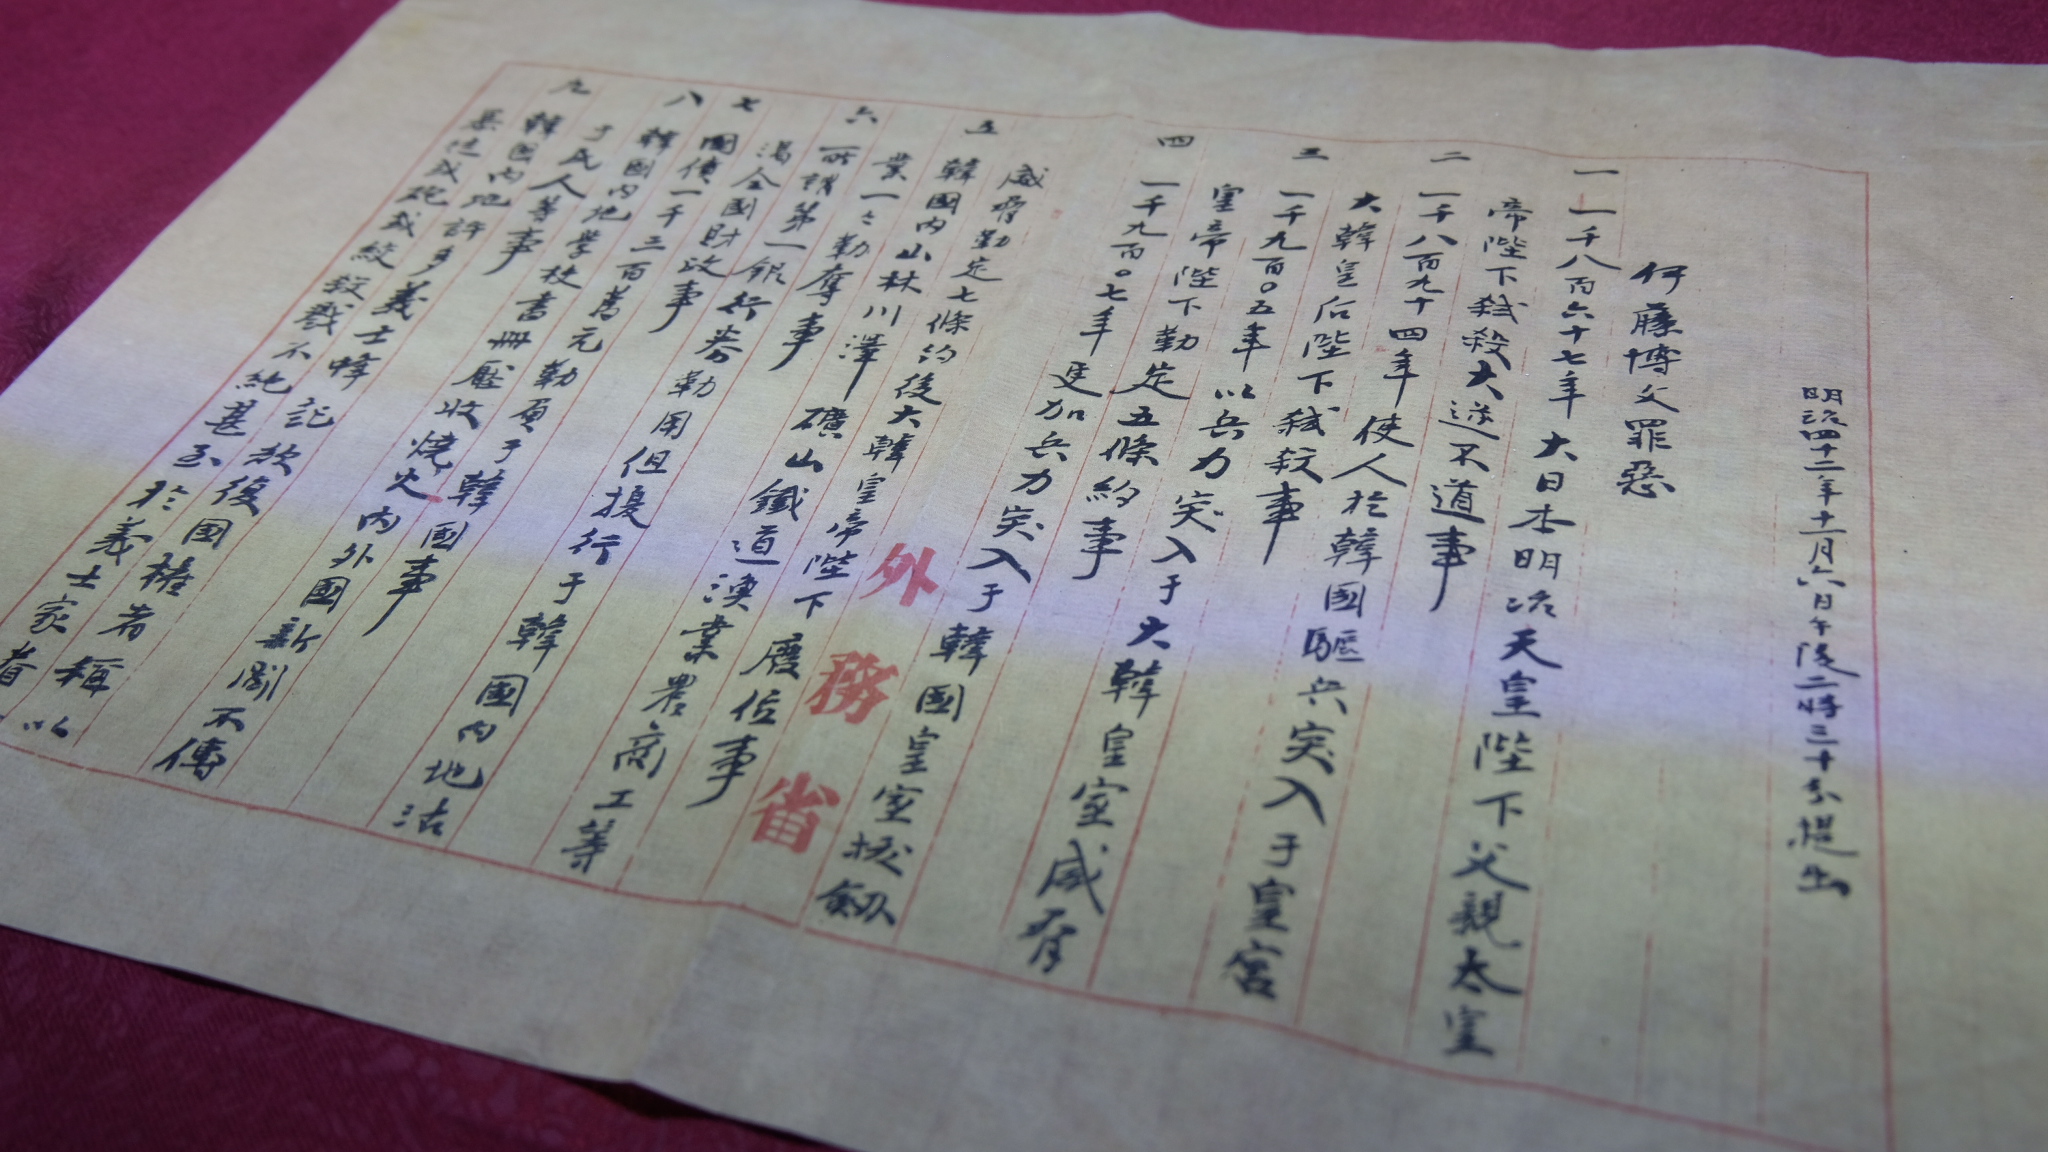 明治四十二年十一月六日午後二時三十分提出
伊藤博文罪惡
一 一千八百六十七年大日本明治天皇陛下父親太皇
帝陛下弑殺大逆不道事
二 一千八百九十四年使人於韓國驅兵突入于皇宮
大韓皇后陛下弑殺事
三 一千九百〇五年以兵力突入于大韓皇室威脅
皇帝陛下勒定五條約事
四 一千九百〇七年更加兵力突入于韓國皇室拔劒
威脅勒定七條約後大韓皇帝陛下廢位事
五 韓國內山林川澤礦山鐵道漁業農商工等
業一々勒奪事
六 所謂第一銀行券勒用但擾行于韓國內地沽
渴全國財政事
七 國債一千三百萬元勒負于韓國事
八 韓國內地學校書冊壓收燒火內外國新聞不傳
于民人等事
九 韓國內地許多義士蜂記欲復國權者稱以
暴徒或砲或絞殺戮不絶甚至於義士家眷
外務省